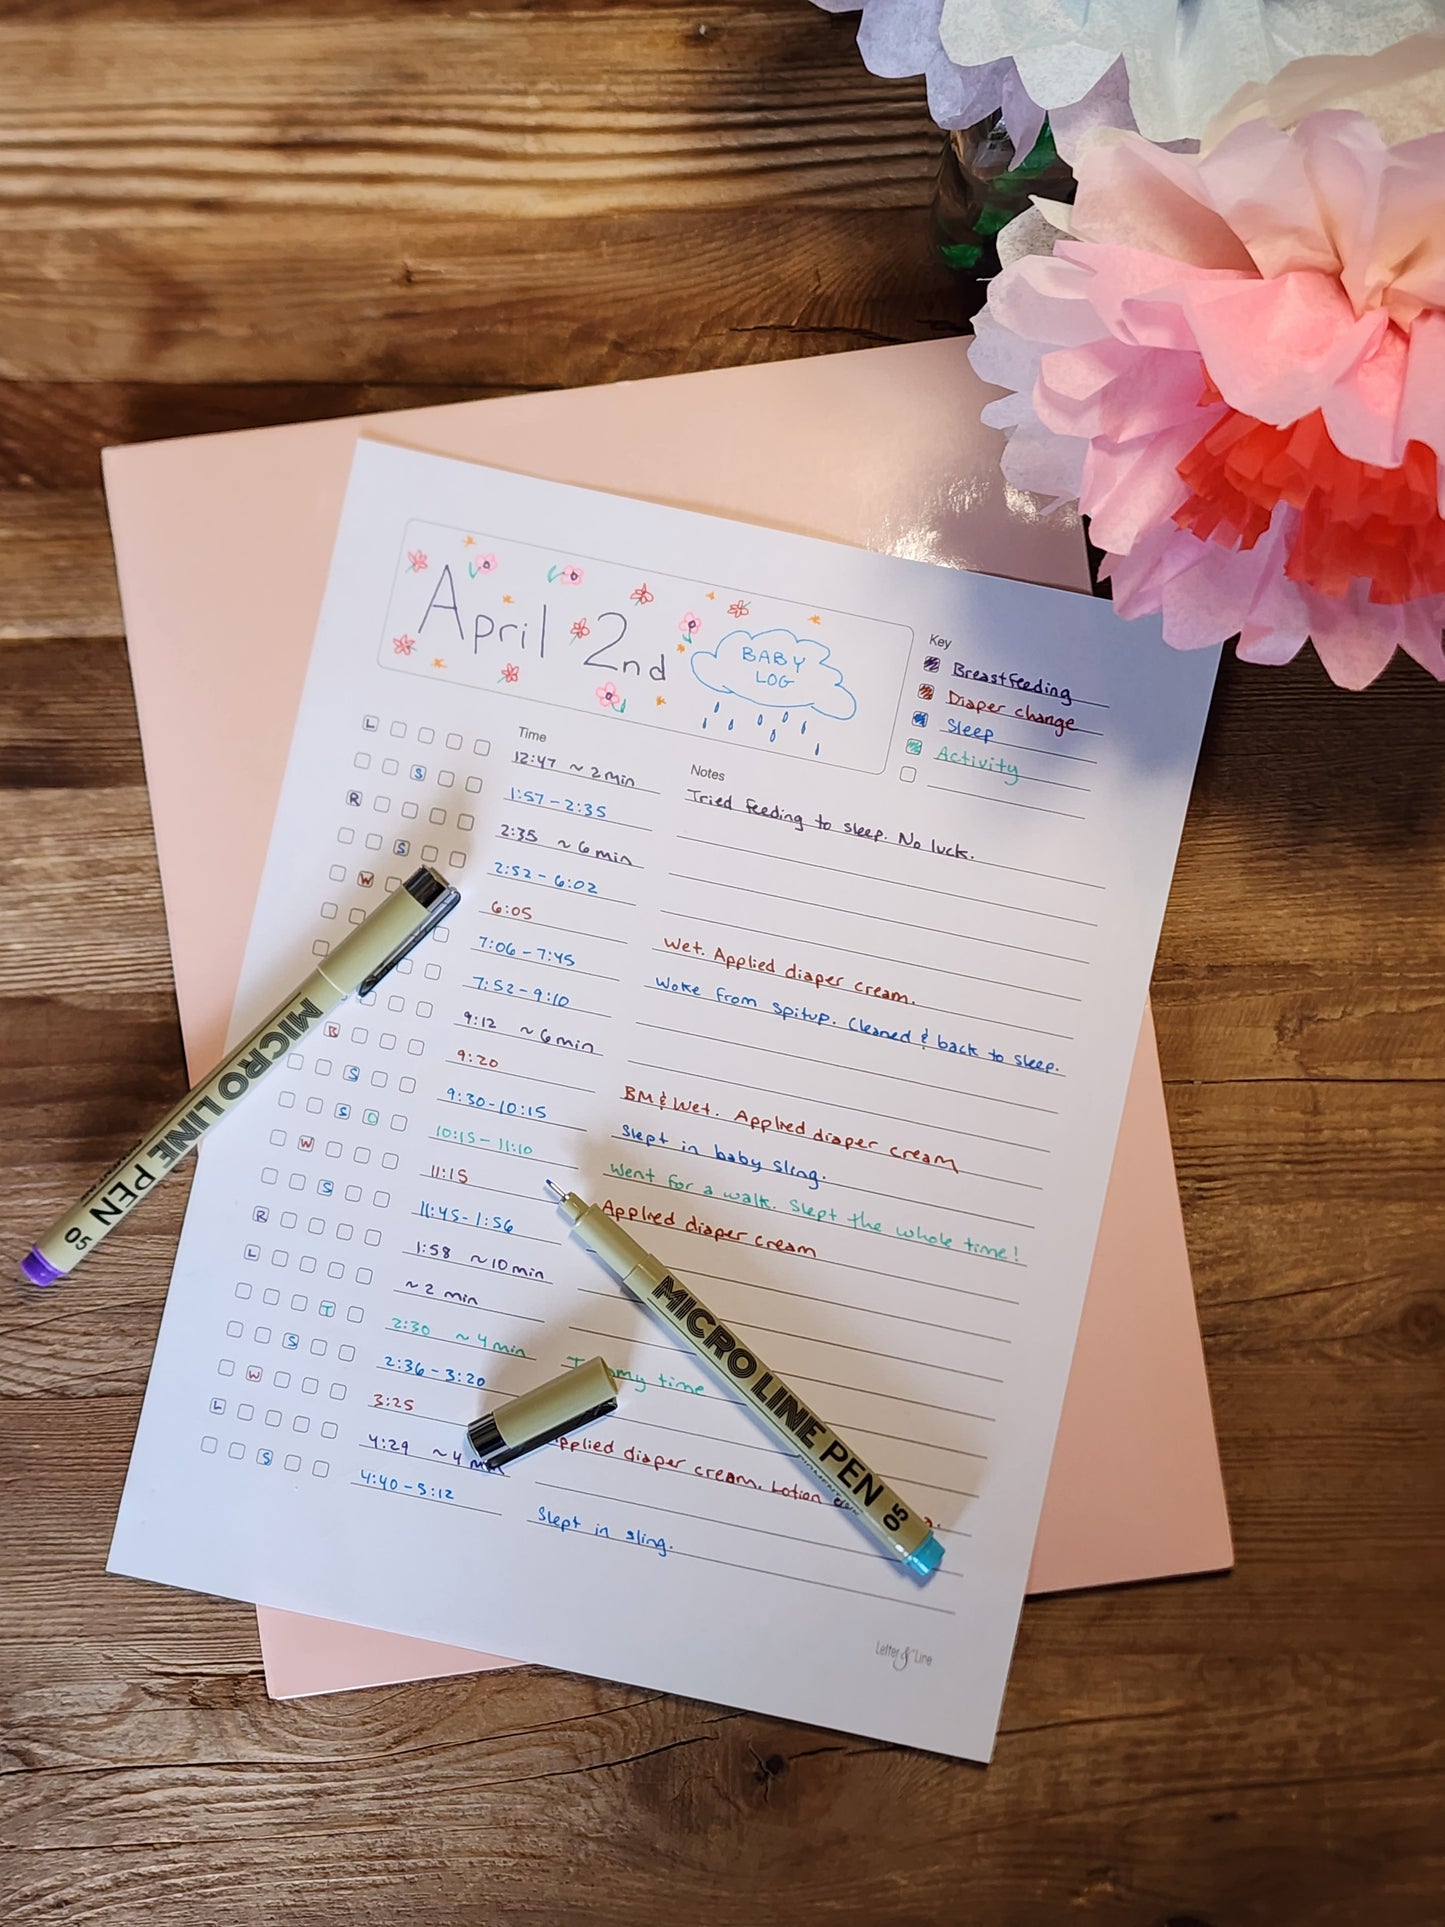 April 2nd
BABY
LOG
Key
Breastfeeding
Diaper change
Sleep
Activity
Time
Notes
L 12:47 ~2min Tried feeding to sleep. No luck.
S 1:57-2:35
R 2:35 ~6min
S 2:52-6:02
W 6:05 Wet. Applied diaper cream.
7:06-7:45 Woke from spitup. Cleaned & back to sleep.
7:52-9:10
9:12 ~6min
B 9:20 BM & Wet. Applied diaper cream
S 9:30-10:15 Slept in baby sling.
S O 10:15-11:10 Went for a walk. Slept the whole time!
W 11:15 Applied diaper cream
S 11:45-1:56
R 1:58 ~10min
L ~2 min
T 2:30 ~4min time
S 2:36-3:20
W 3:25 Applied diaper cream. Lotion
L 4:29 ~4
S 4:40-5:12 Slept in sling.
Letter & Line
MICRO LINE PEN 05
MICRO LINE PEN 05